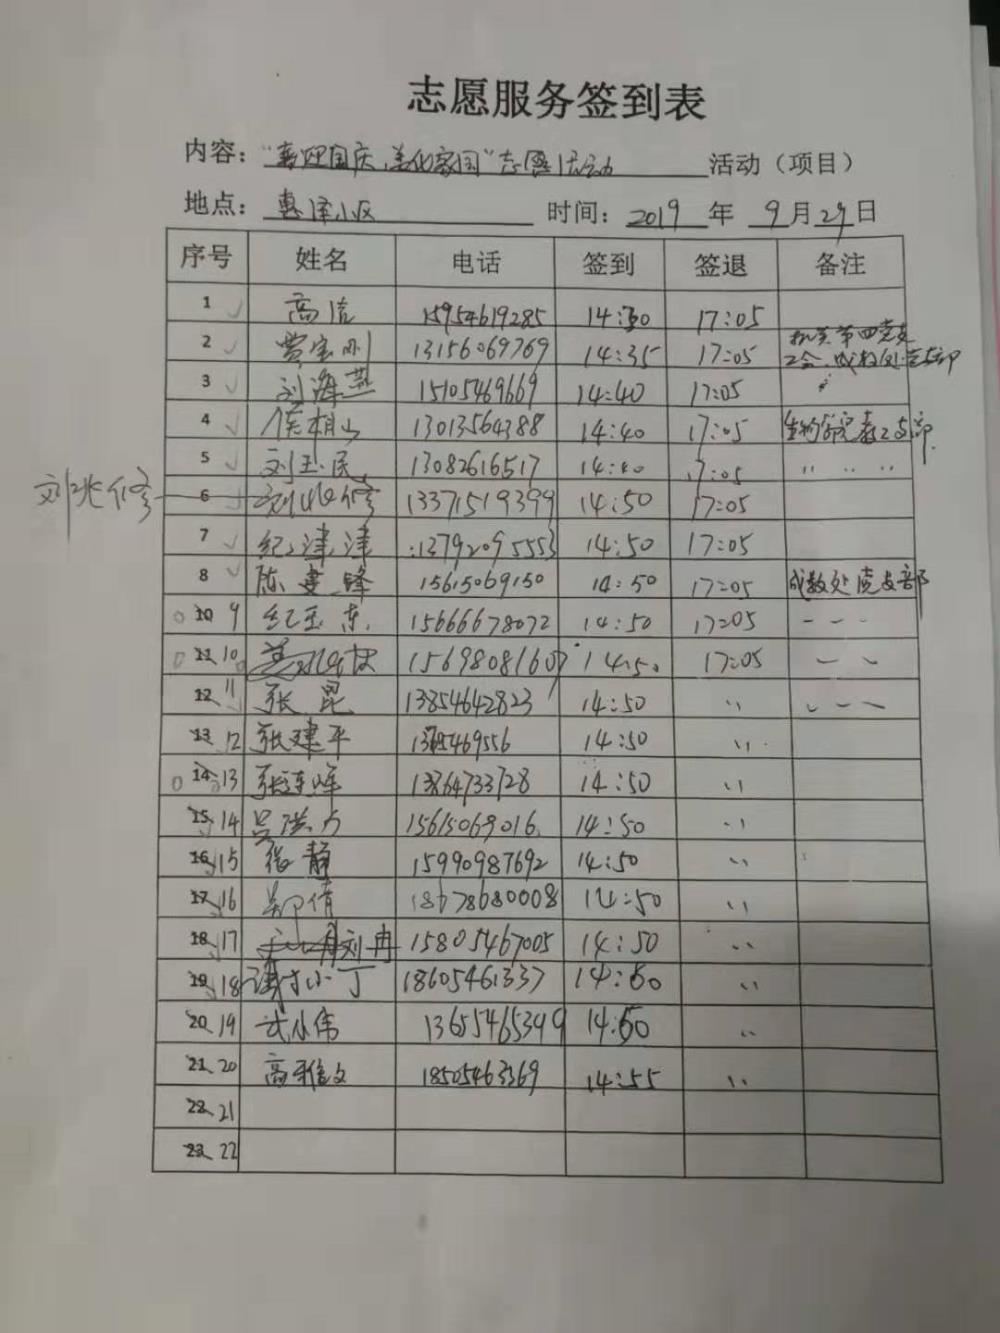 志愿服务签到表
内容："喜迎国庆、美化家园"志愿活动 活动（项目）
地点：惠泽小区 时间：2019 年 9月29日
序号 姓名 电话 签到 签退 备注
1 高洁 15954619285 14:30 17:05
2 贾宝刚 13156069769 14:35 17:05 机关第四党支 工会、成教处党支部
3 刘海燕 15105469669 14:40 17:05
4 侯相山 13013564388 14:40 17:05 生物学院教工支部
5 刘玉民 13082616517 14:40 17:05 〃 〃 〃
刘兆修 6 刘兆修 13371519399 14:50 17:05
7 纪津津 13792095553 14:50 17:05
8 陈建锋 15615069150 14:50 17:05 成教处党支部
10 9 纪玉东 15666678072 14:50 17:05 - - -
11 10 15698081607 14:50 17:05 - -
12 11 张昆 13854642823 14:50 〃 - - -
13 12 张建平 14:50 〃
14 13 张连峰 13864733728 14:50 〃
15 14 吕洪方 15615069016 14:50 〃
16 15 张静 15990987692 14:50 〃
17 16 郑倩 18678680008 14:50 〃
18 17 刘冉 15805467005 14:50 〃
19 18 小丁 18605461337 14:50 〃
20 19 武小伟 13655465399 14:50 〃
21 20 高雅文 18505463369 14:55 〃
22 21
23 22